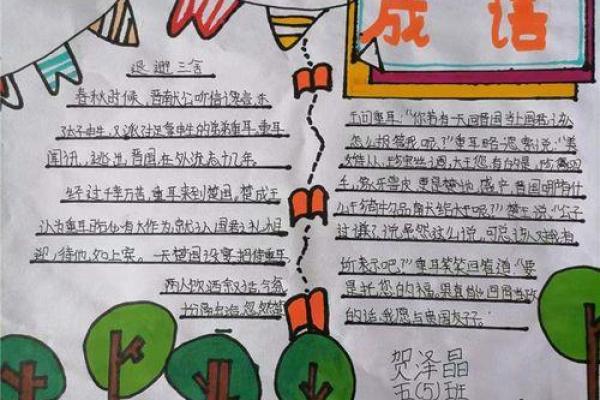 成语
退避三舍
春秋时候,晋献公听信谗言,杀
太子申生,又派人捉拿申生的弟弟重耳。重耳
闻讯,逃出晋国,在外流亡十几年。
经过千辛万苦,重耳来到楚国。楚成王
认为重耳日后必有大作为,就以国君之礼相
迎,待他如上宾。一天楚国设宴招待重耳
两人饮酒叙话,气氛
忽然楚
王问重耳:“你若有一天回晋国当上国君,该
怎么报答我呢?”重耳略思索说:“美
女侍从、珍宝丝绸,大王您有的是,珍禽羽
毛,象牙兽皮,更是楚地盛产,晋国哪有什
么珍奇物品献给大王呢?”楚王说:“公子
过谦了说虽然这么说,可总该对我有
所表示吧?”重耳笑笑回答道:“要
是托您的福,果真能回国当政
的话,我愿与贵国友好。
贺泽晶
五(5)班